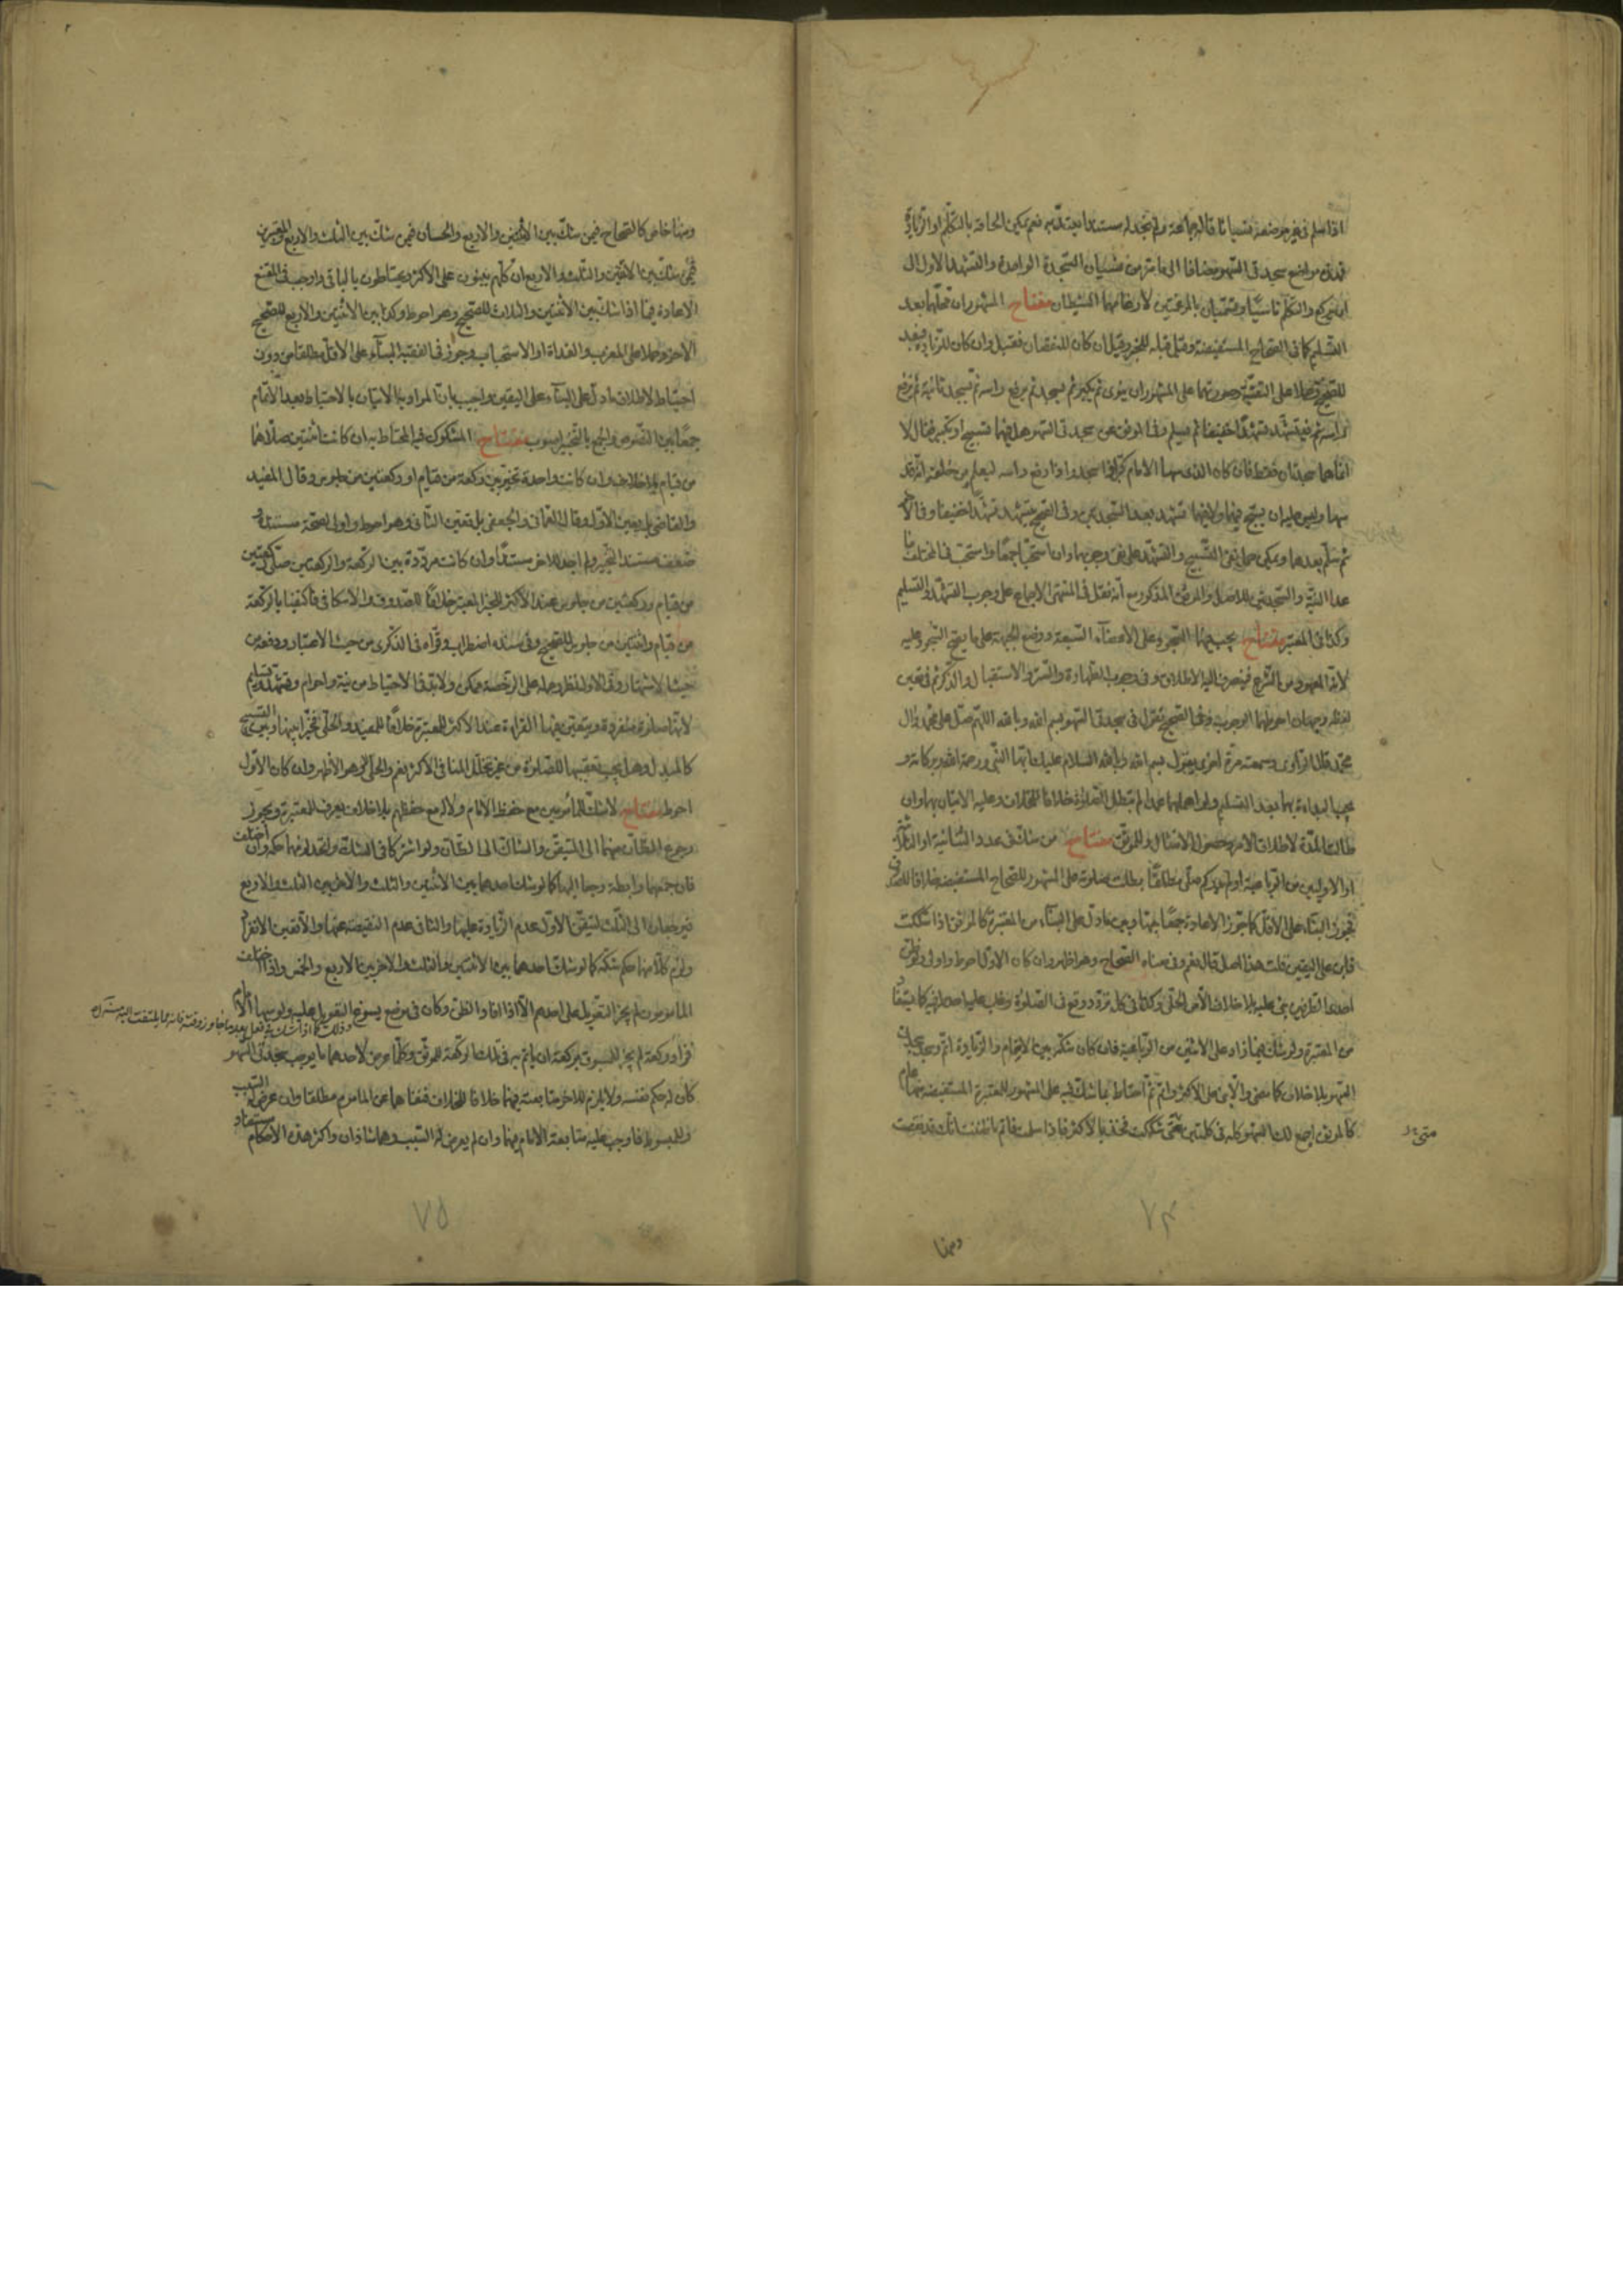 اذا سلم في غير موضعه نسيانا قاله جماعة ولم نجد له مستندا يعتد به نعم يمكن الحاقه بالتكلم او الزيادة
مواضع سجدتي السهو مضافا الى ما مر من نسيان السجدة الواحدة والتشهد الاول ال
والتكلم ناسيا وتسميان بالمرغمتين لارغامهما الشيطان مفتاح المشهور ان محلهما بعد
التسليم كما في الصحاح المستفيضة وقيل قبله للخبر وقيل ان كان للنقصان فقبل وان كان للزيادة فبعد
للصحيح وحملا على التقية وصورتهما على المشهور ان ينوى ثم يكبر ثم يسجد ثم يرفع راسه ثم يسجد ثانية ثم يرفع
راسه ثم يتشهد تشهدا خفيفا ثم يسلم وفي الموثق عن سجدتي السهو هل فيهما تسبيح او تكبير فقال لا
انما هما سجدتان فقط فان كان الذى سها الامام كبر اذا سجد واذا رفع راسه ليعلم من خلفه انه قد
سها وليس عليه ان يسبح فيهما ولا فيهما تشهد بعد السجدتين وفي الصحيح يتشهد تشهدا خفيفا وفي الاخر
ثم سلم بعدها ويمكن حمل نفى التسبيح والتشهد على نفى وجوبهما وان استحبا جمعا واستحب في المختلف ما
عدا النية والسجدتين للاصل والموثق المذكور مع انه نقل في المنتهى الاجماع على وجوب التشهد والتسليم
وكذا في المعتبر مفتاح يجب فيهما السجود على الاعضاء السبعة ووضع الجبهة على ما يصح السجود عليه
لانه المعهود من الشرع فينصرف اليه الاطلاق وفي وجوب الطهارة والستر والاستقبال والذكر ثم في تعين
لفظه وجهان احوطهما الوجوب وفي الصحيح تقول في سجدتي السهو بسم الله وبالله اللهم صل على محمد وال
محمد قال الراوى وسمعته مرة اخرى يقول بسم الله وبالله السلام عليك ايها النبى ورحمة الله وبركاته و
يجب البداءة بهما بعد التسليم ولو اهملهما عمدا لم تبطل الصلوة خلافا للخلاف وعليه الاتيان بهما وان
طالت المدة لاطلاق الامر وحصول الامتثال وللموثق مفتاح من شك في عدد الثنائية او الثلاثية
او الاوليين من الرباعية او لم يدر كم صلى مطلقا بطلت صلوته على المشهور للصحاح المستفيضة خلافا للصدوق
فجوز البناء على الاقل كما جوز الاعادة جمعا بينها وبين ما دل على البناء من المعتبرة كالموثق اذا شككت
فابن على اليقين قلت هذا اصل قال نعم وفي معناه الصحاح وهو اظهر وان كان الاول احوط واولى ولو ظن
احد الطرفين بنى عليه بلا خلاف الا من الحلى وكذا في كل تردد وقع في الصلوة وغلب عليه احد طرفيه كما يستفاد
من المعتبرة ولو شك فيما زاد على الاثنتين من الرباعية فان كان شكه بين الاتمام والزيادة اتم وسجد سجدتى
السهو بلا خلاف كما مضى والا بنى على الاكثر واتم ثم احتاط بما شك فيه على المشهور للمعتبرة المستفيضة منها عام
كالموثق اجمع لك السهو كله في كلمتين متى شككت فخذ بالاكثر فاذا سلمت فاتم ما ظننت انك قد نقصت
متى
٧٤
ومنها
ومنها خاص كالصحاح فيمن شك بين الاثنتين والاربع والحسان فيمن شك بين الثلث والاربع
فيمن شك بين الاثنتين والثلث والاربع ان كلهم يبنون على الاكثر ويحتاطون بالباقى واوجب في المقنع
الاعادة فيما اذا شك بين الاثنتين والثلاث للصحيح وهو احوط وكذا بين الاثنتين والاربع للصحيح
الاخر وحملا على المغرب والغداة او الاستحباب وجوز في الفقيه البناء على الاقل مطلقا من دون
احتياط لاطلاق ما دل على البناء على اليقين واجيب بان المراد به الاتيان بالاحتياط بعد الاتمام
جمعا بين النصوص والجمع بالتخيير اصوب مفتاح المشكوك فيه المحتاط به ان كانت اثنتين صلاهما
من قيام بلا خلاف وان كانت واحدة تخير بين ركعة من قيام او ركعتين من جلوس وقال المفيد
والقاضى بل يتعين الاول وقال العمانى والجعفى بل يتعين الثانى وهو احوط واولى لصحة مستنده و
ضعف مستند التخيير ولم اجد للاخر مستندا وان كانت مرددة بين الركعة والركعتين صلى ركعتين
من قيام وركعتين من جلوس عند الاكثر للخبر المعتبر خلافا للصدوق والاسكافى فاكتفيا بالركعة
من قيام واثنتين من جلوس للصحيح وفي سنده اضطراب وقواه في الذكرى من حيث الاعتبار ودفعه من
حيث الاشتهار وفي الاول نظر وحمله على الرخصة ممكن ولا بد في الاحتياط من نية واحرام وتشهد وتسليم
لانها صلوة منفردة ويتعين فيها القراءة عند الاكثر للمعتبرة خلافا للمفيد والحلى فخيرا بينها وبين التسبيح
كالمبدل وهل يجب تعقيبها للصلوة من غير تخلل المنافى الاكثر نعم والحلى لا وهو الاظهر وان كان الاول
احوط مفتاح لا شك للمأمومين مع حفظ الامام ولا له مع حفظهم بلا خلاف يعرف للمعتبرة ويجوز
رجوع الظان منهما الى المتيقن والشاك الى الظان ولو اشتركا في الشك واتحد لزمهما حكمه وان اختلف
فان جمعهما رابطة رجعا اليها كما لو شك احدهما بين الاثنتين والثلث والاخر بين الثلث والاربع
فيرجعان الى الثلث لتيقن الاول عدم الزيادة عليها والثانى عدم النقيصة عنها والا تعين الانفراد
ولزم كلا منهما حكم شكه كما لو شك احدهما بين الاثنتين والثلث والاخر بين الاربع والخمس واذا اختلف
المأمومون لم يجز التعويل على احدهم الا اذا افاد الظن وكان في موضع يسوغ التعويل عليه ولو سها الامام
فزاد ركعة لم يجز للمسبوق بركعة ان ياتم به في تلك الركعة للموثق وكلما عرض لاحدهما ما يوجب سجدتى السهو
كان له حكم نفسه ولا يلزم للاخر متابعته فيهما خلافا للخلاف فنفاهما عن المأموم مطلقا وان عرض له السبب
وللمبسوط فاوجب عليه متابعة الامام فيهما وان لم يعرض له السبب وهما شاذان واكثر هذه الاحكام مستفاد
٧٥